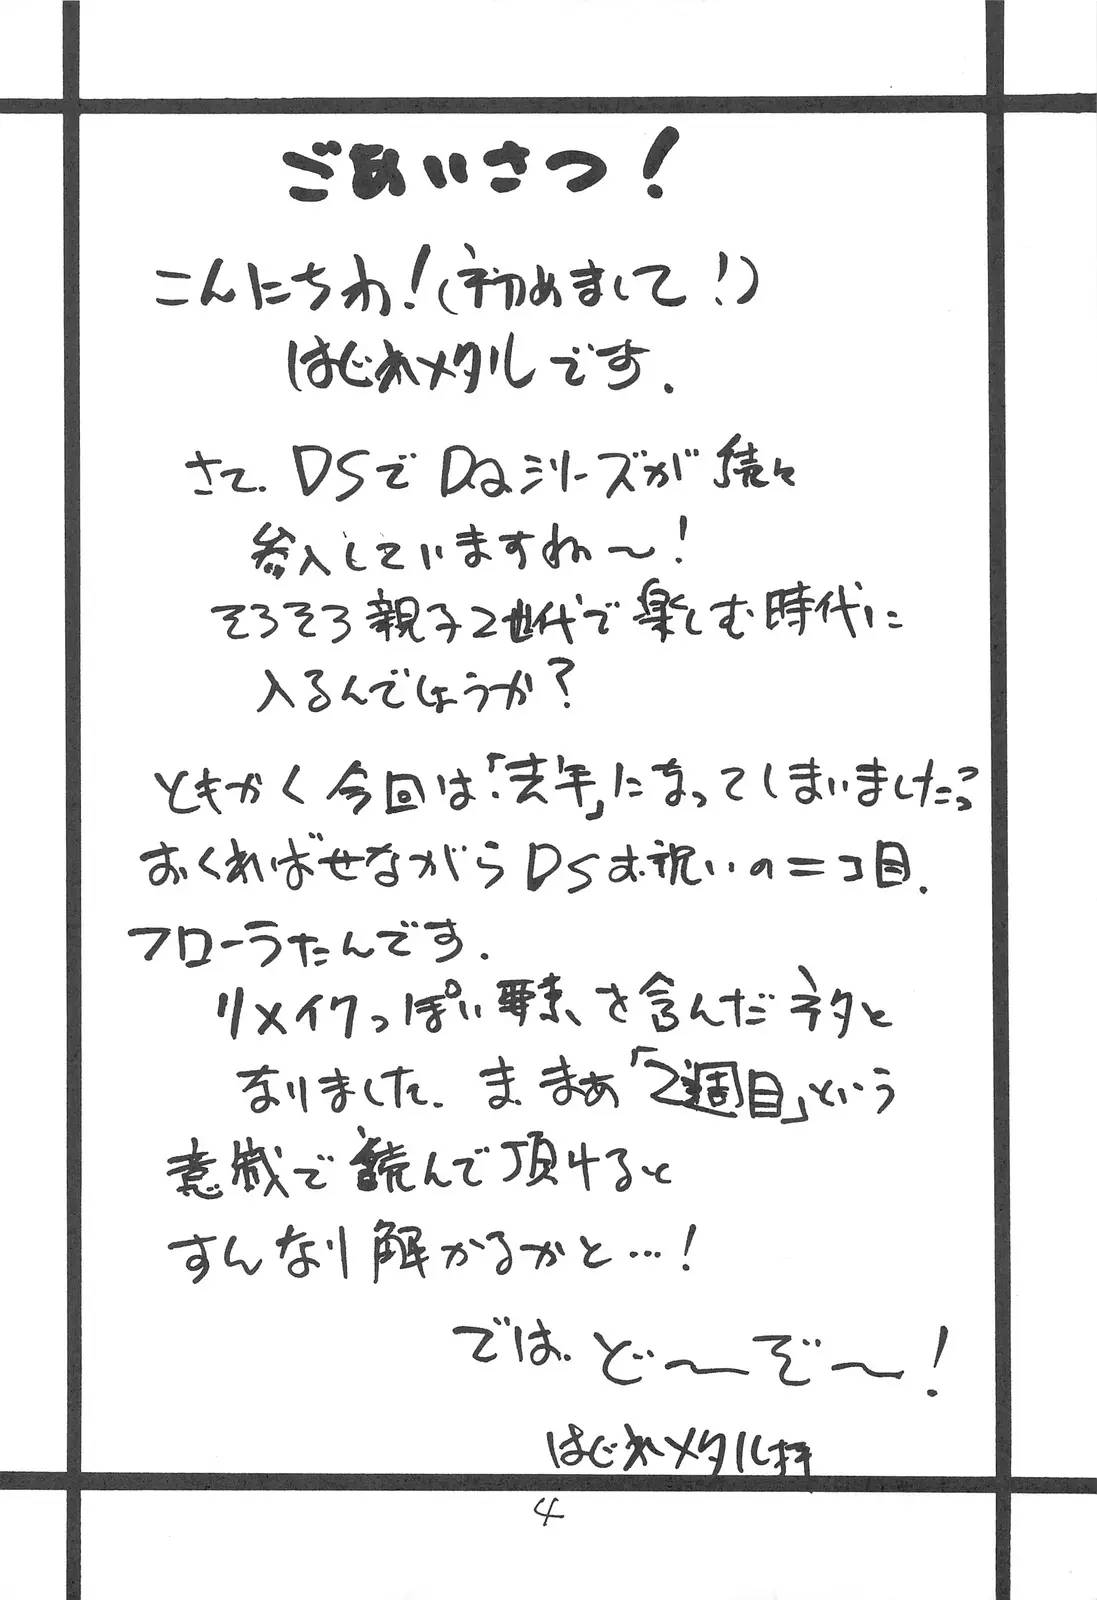 ごあいさつ!
こんにちわ!(初めまして!)
はじれメタルです.
さて、DSでDQシリーズが続々
参入していますね〜!
そろそろ親子2世代で楽しむ時代に
入るんでしょうか?
ともかく今回は「去年」になってしまいましたっ
おくればせながらDSお祝いの二コ目.
フローラたんです.
リメイクっぽい要素を含んだネタと
なりました.ま、まあ「2週目」という
意識で読んで頂けると
すんなり解かるかと…!
では、ど〜ぞ〜!
はじれメタル拝
4